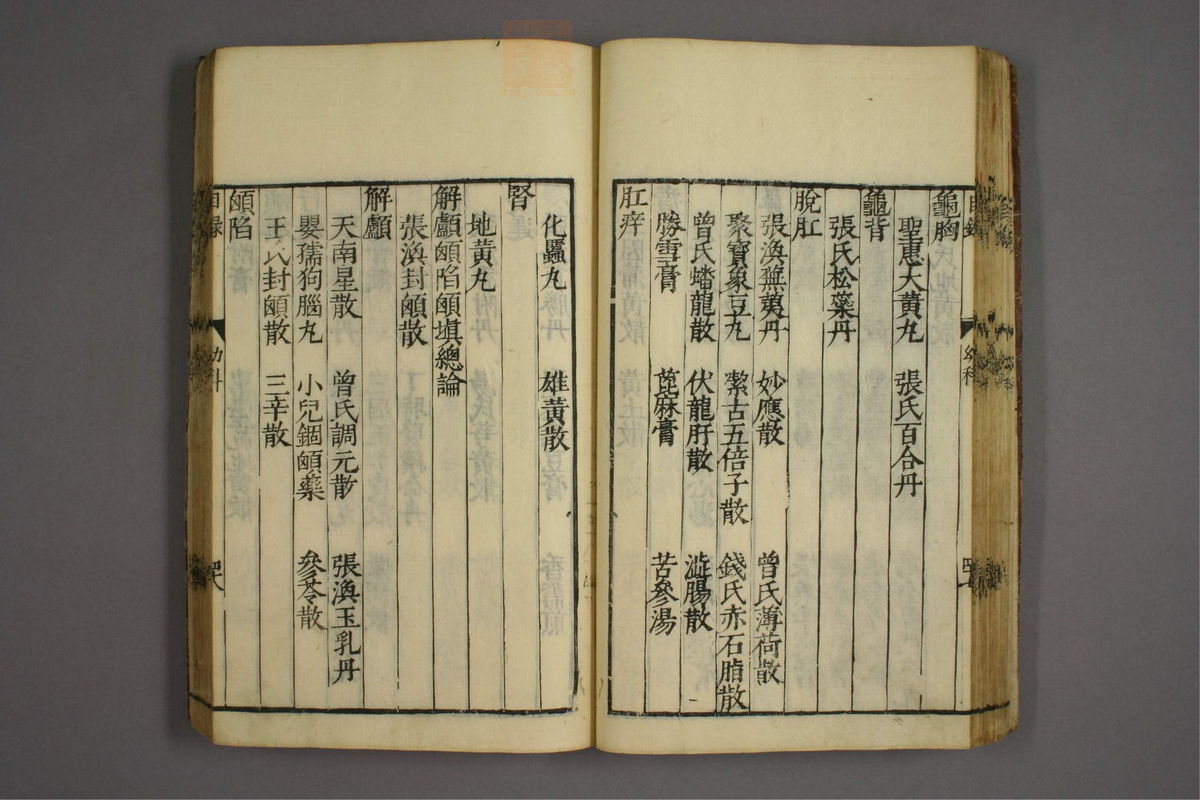 龜胸
聖惠大黃丸 張氏百合丹
龜背
張氏松蘂丹
脫肛
張渙蕪荑丹 妙應散 曾氏薄荷散
聚寶象豆丸 絜古五倍子散 錢氏赤石脂散
曾氏蟠龍散 伏龍肝散 澁腸散
勝雪膏 萞麻膏 苦參湯
肛痒
化䘌丸 雄黃散
腎
地黃丸
解顱顖陷顖塡總論
張渙封顖散
解顱
天南星散 曾氏調元散 張渙玉乳丹
嬰孺狗腦丸 小兒錮顖藥 參苓散
王氏封顖散 三辛散
顖陷
目錄 幼科